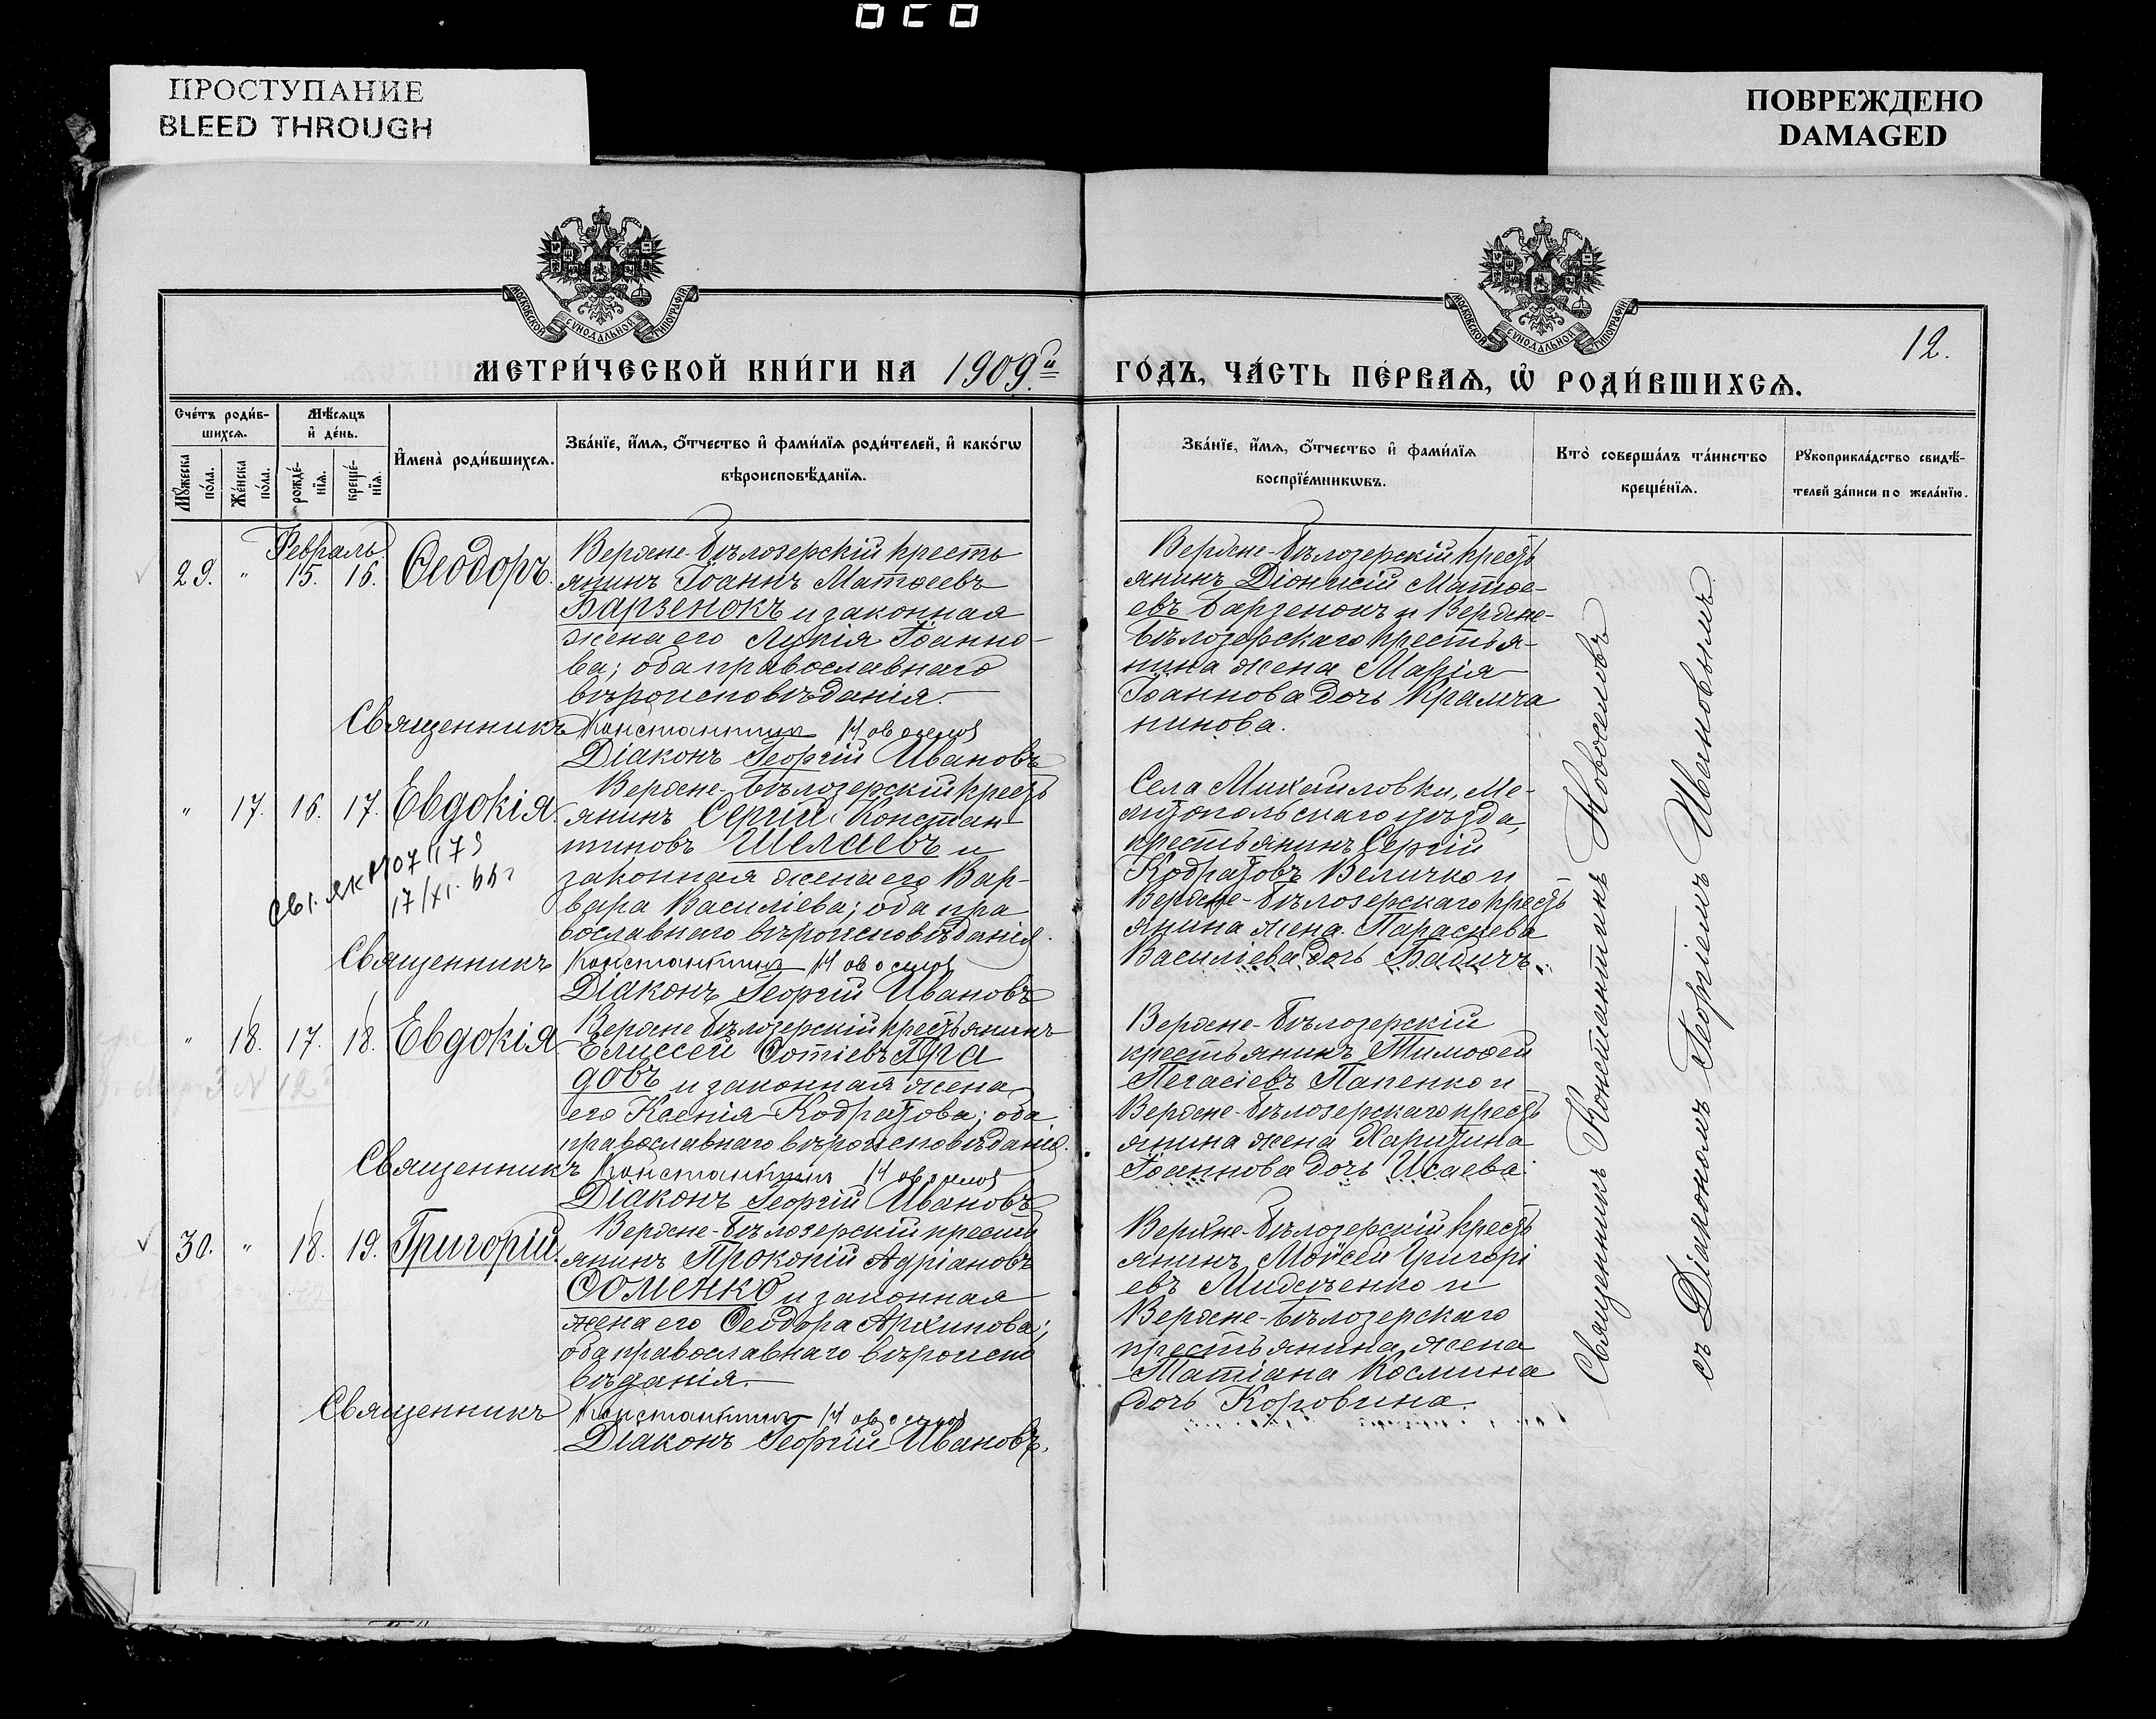 ПРОСТУПАНИЕ
BLEED THROUGH
ПОВРЕЖДЕНО
DAMAGED
МОСКОВСКОЙ СѴНОДАЛЬНОЙ ТИПОГРАФІИ
МОСКОВСКОЙ СѴНОДАЛЬНОЙ ТИПОГРАФІИ
12.
МЕТРИ́ЧЕСКОЙ КНИ́ГИ НА 1909й
ГО́ДЪ, ЧА́СТЬ ПЕ́РВАѦ, Ѡ҆ РОДИ́ВШИХСѦ.
Сче́тъ роди́в-
шихсѧ.
Мѣ́сѧцъ
и҆ де́нь.
Мꙋ́жеска по́ла.
Же́нска по́ла.
рожде́-
нїѧ.
креще́-
нїѧ.
И҆мена̀ роди́вшихсѧ.
Зва́нїе, и҆́мѧ, ѻ҆́тчество и҆ фами́лїѧ роди́телей, и҆ како́гѡ
вѣроисповѣ́данїѧ.
Зва́нїе, и҆́мѧ, ѻ҆́тчество и҆ фами́лїѧ
воспрїе́мникѡвъ.
Кто̀ соверша́лъ та́инство
креще́нїѧ.
Рꙋкоприкла́дство свидѣ́-
телей за́писи по жела́нїю.
Февраль.
29. " 15. 16. Ѳеодоръ.
Верхне-Бѣлозерскій кресть
янинъ Іоаннъ Матѳеевъ
Барзенокъ и законная
жена его Лукія Іоанно-
ва; оба православнаго
вѣроисповѣданія.
Священникъ Константинъ Новоселов
Діаконъ Георгій Ивановъ
Верхне-Бѣлозерскій кресть
янинъ Діонисій Матѳе-
евъ Барзенокъ и Верхне-
Бѣлозерскаго крестья-
нина жена Марія
Іоаннова дочь Крамча
нинова.
" 17. 16. 17. Евдокія.
Верхне-Бѣлозерскій кресть
янинъ Сергій Констан
тиновъ Шелаевъ и
законная жена его Вар-
вара Василіева; оба пра
вославнаго вѣроисповѣданія.
17/XI.
Священникъ Константинъ Новоселов
Діаконъ Георгій Ивановъ
Села Михайловки, Ме-
литопольскаго уѣзда,
крестьянинъ Сергій
Кодратовъ Величко и
Верхне-Бѣлозерскаго кресть
янина жена Параскева
Василіева дочь Бабичъ.
" 18. 17. 18. Евдокія
Верхне Бѣлозерскій крестьянинъ
Елиссей Фотіевъ Гра
довъ и законная жена
его Ксенія Кодратова; оба
православнаго вѣроисповѣданія.
Священникъ Константинъ Новоселов
Діаконъ Георгій Ивановъ
Верхне-Бѣлозерскій
крестьянинъ Тимоѳей
Пегасіевъ Папенко и
Верхне-Бѣлозерскаго кресть
янина жена Харитина
Іоаннова дочь Исаева.
30. " 18. 19. Григорій.
Верхне-Бѣлозерскій кресть
янинъ Прокопій Адріановъ
Ѳоменко и законная
жена его Ѳеодора Архипова;
оба православнаго вѣроиспо
вѣданія.
Священникъ Константинъ Новоселов
Діаконъ Георгій Ивановъ.
Верхне-Бѣлозерскій кресть
янинъ Моѵсей Григорі
евъ и
Верхне-Бѣлозерскаго
крестьянина жена
Татіана Космина
дочь Коровина.
Священникъ Константинъ Новоселовъ
съ Діакономъ Георгіемъ Ивановымъ.